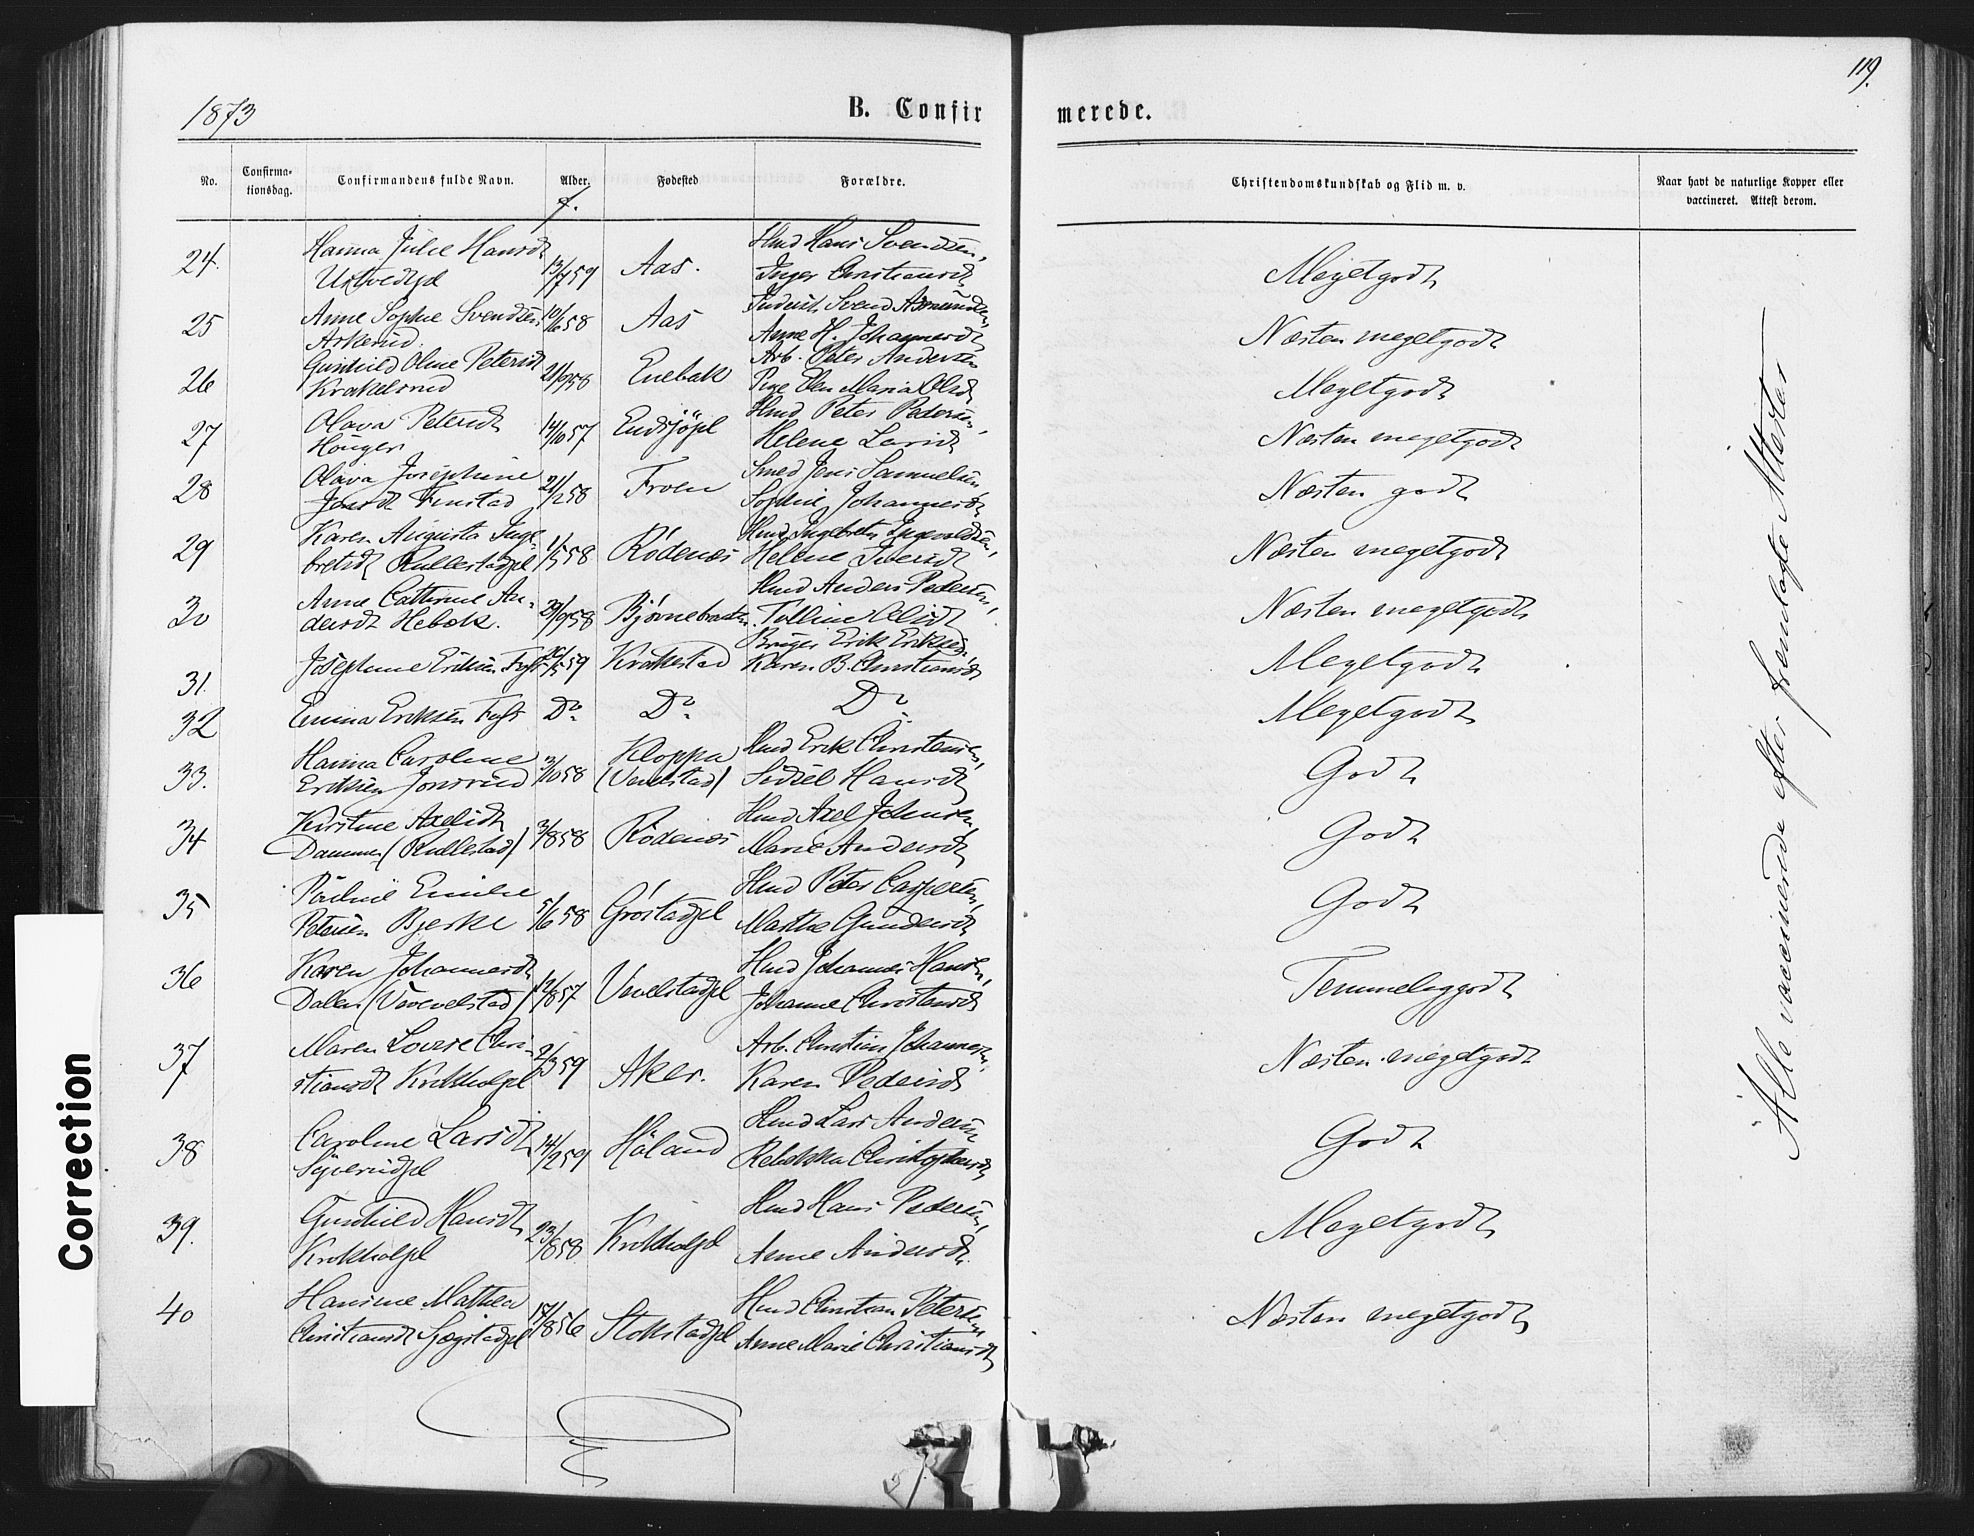 119.
1873
B. Confir
merede.
No.
Confirma-
tionsdag.
Confirmandens fulde Navn.
Alder.
f.
Fødested
Forældre.
Christendomskundskab og Flid m. v.
Naar havt de naturlige Kopper eller
vaccineret. Attest derom.
24.
Hanna Julie Hansdt
13/7 59
Aas.
Hmd Hans Svendsen,
Inger Christiansdt
Megetgodt
25
Anne Sophie Svendsen
Askerud.
10/6 58
Aas
Svend Asmundsen,
Anne H. Johannesdt
Næsten megetgodt
26
Gunhild Oline Petersdt
Krakelsrud
21/9 58
Enebak
Arb. Peter Andersen
Pige Elen Maria Olsdt
Megetgodt
27
Olava Petersdt
14/10 57
Endsjøpl
Hmd Peter Pedersen,
Helene Larsdt
Næsten megetgodt
28
Olava Josephine
Jensdt Finstad
21/2 58
Froen
Smed Jens Samuelsen,
Sophie Johannesdt
Næsten godt
29
Karen Augusta Inge-
bretsdt Rullestadpl
1/5 58
Rödenæs
Hmd Ingebret Ingevaldsen,
Helene Iversdt
Næsten megetgodt
30
Anne Cathrine An-
dersdt Hebæk.
29/9 58
Hmd Anders Pedersen,
Olsdt
Næsten megetgodt
31.
Josephine Eriksen
59
Krakestad
Bruger Erik Eriksen,
Karen B. Christiansdt
Megetgodt
32
Emma Eriksen
Do.
Do.
Do.
Megetgodt
33.
Hanna Caroline
Eriksen Jonsrud
3/10 58
Kloppa
(Vevelstad)
Hmd Erik Christensen,
Sidsel Hansdt
Godt
34
Kirstine Axelsdt
Dammen (Rullestad)
3/8 58
Rödenæs
Hmd Axel Johnsen,
Marie Andersdt
Godt
35
Pauline Emilie
Petersen Bjerke
5/6 58
Gröstadpl
Hmd Peter Caspersen,
Marthe Gundersdt
Godt
36
Karen Johannesdt
Dalen (Vevelstad)
12/8 57
Vevelstadpl
Hmd Johannes Hansen,
Johanne Christensdt
Temmeliggodt
37
Maren Lovise Chri-
stiansdt Krokholpl
2/3 59
Aker.
Arb. Christian Johannesen,
Karen Pedersdt
Næsten megetgodt
38
Caroline Larsdt
Syverudpl
14/2 59
Höland
Hmd Lars Andersen
Rebekka Christophersdt
Godt
39.
Gunhild Hansdt
Krokholpl
23/8 58
Krokholpl
Hmd Hans Pedersen,
Anne Andersdt
Megetgodt
40
Hansine Mathea
Christiansdt Sægstadpl
17/8 56
Stokstadpl
Hmd Christian Petersen
Anne Marie Christiansdt
Næsten megetgodt
Alle vaccinerede efter fremlagte Attester
Correction